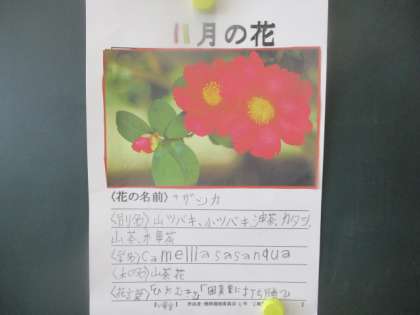 11月の花
〈花の名前〉サザンカ
〈別名〉山ツバキ、小ツバキ 油茶、カタシ
山茶、水果茶
〈学名〉Camellia sasanqua
〈木の名〉山茶花
〈花言葉〉「ひたむき」「困難に打ち勝つ」